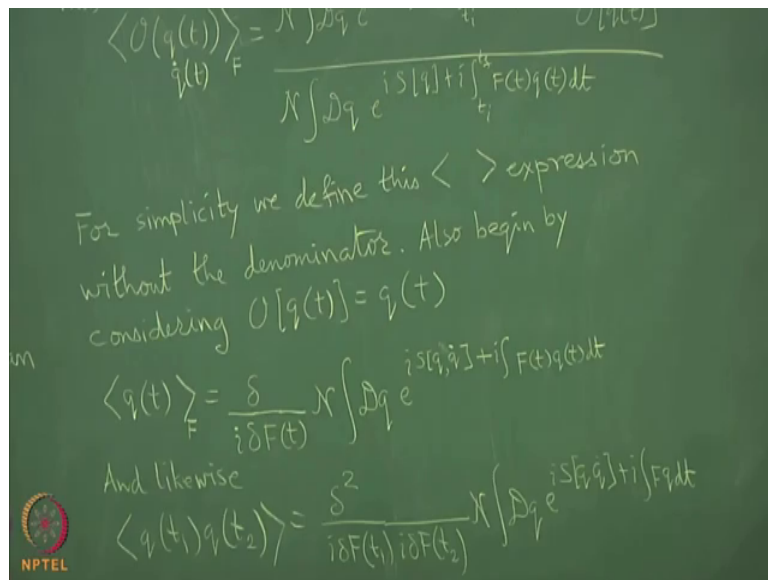 ⟨O(q(t))⟩_F = N∫Dq e O[q(t)]
q̇(t)
N∫Dq e^{iS[q]+i∫_{t_i}^{t_f} F(t)q(t)dt}
For simplicity we define this < > expression
without the denominator. Also begin by
considering O[q(t)] = q(t)
⟨q(t)⟩_F = δ/(iδF(t)) N∫Dq e^{iS[q,q̇]+i∫F(t)q(t)dt}
And likewise
⟨q(t₁)q(t₂)⟩ = δ²/(iδF(t₁)iδF(t₂)) N∫Dq e^{iS[q,q̇]+i∫Fqdt}
NPTEL